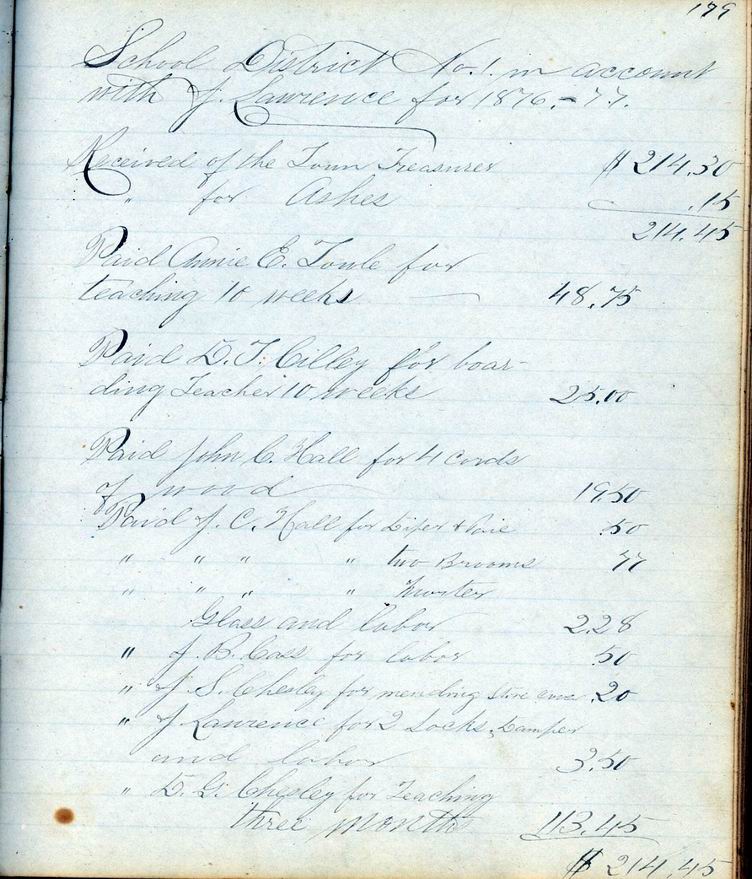 179
School District No. 1. in account
with J. Lawrence for 1876,-77.
Received of the Town Treasurer $ 214.30
" for Ashes .15
214.45
Paid Annie E. Towle for
teaching 10 weeks 48.75
Paid D. T. Cilley for boar-
ding Teacher 10 weeks 25.00
Paid John C. Hall for 4 cords
of wood 19.50
Paid J. C. Hall for Diper & Paie 50
" " " " two Brooms 77
" " " "
Glass and labor 2.28
" J. B. Cass for labor 50
" J. S. Chesley for mending stove .20
" J. Lawrence for 2 Locks, Damper
and labor 3.50
" D. G. Chesley for Teaching
three months 113.45
$ 214.45